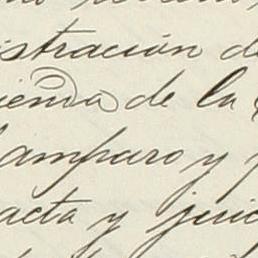 istración d
ienda de la
amparo y
acta y juic